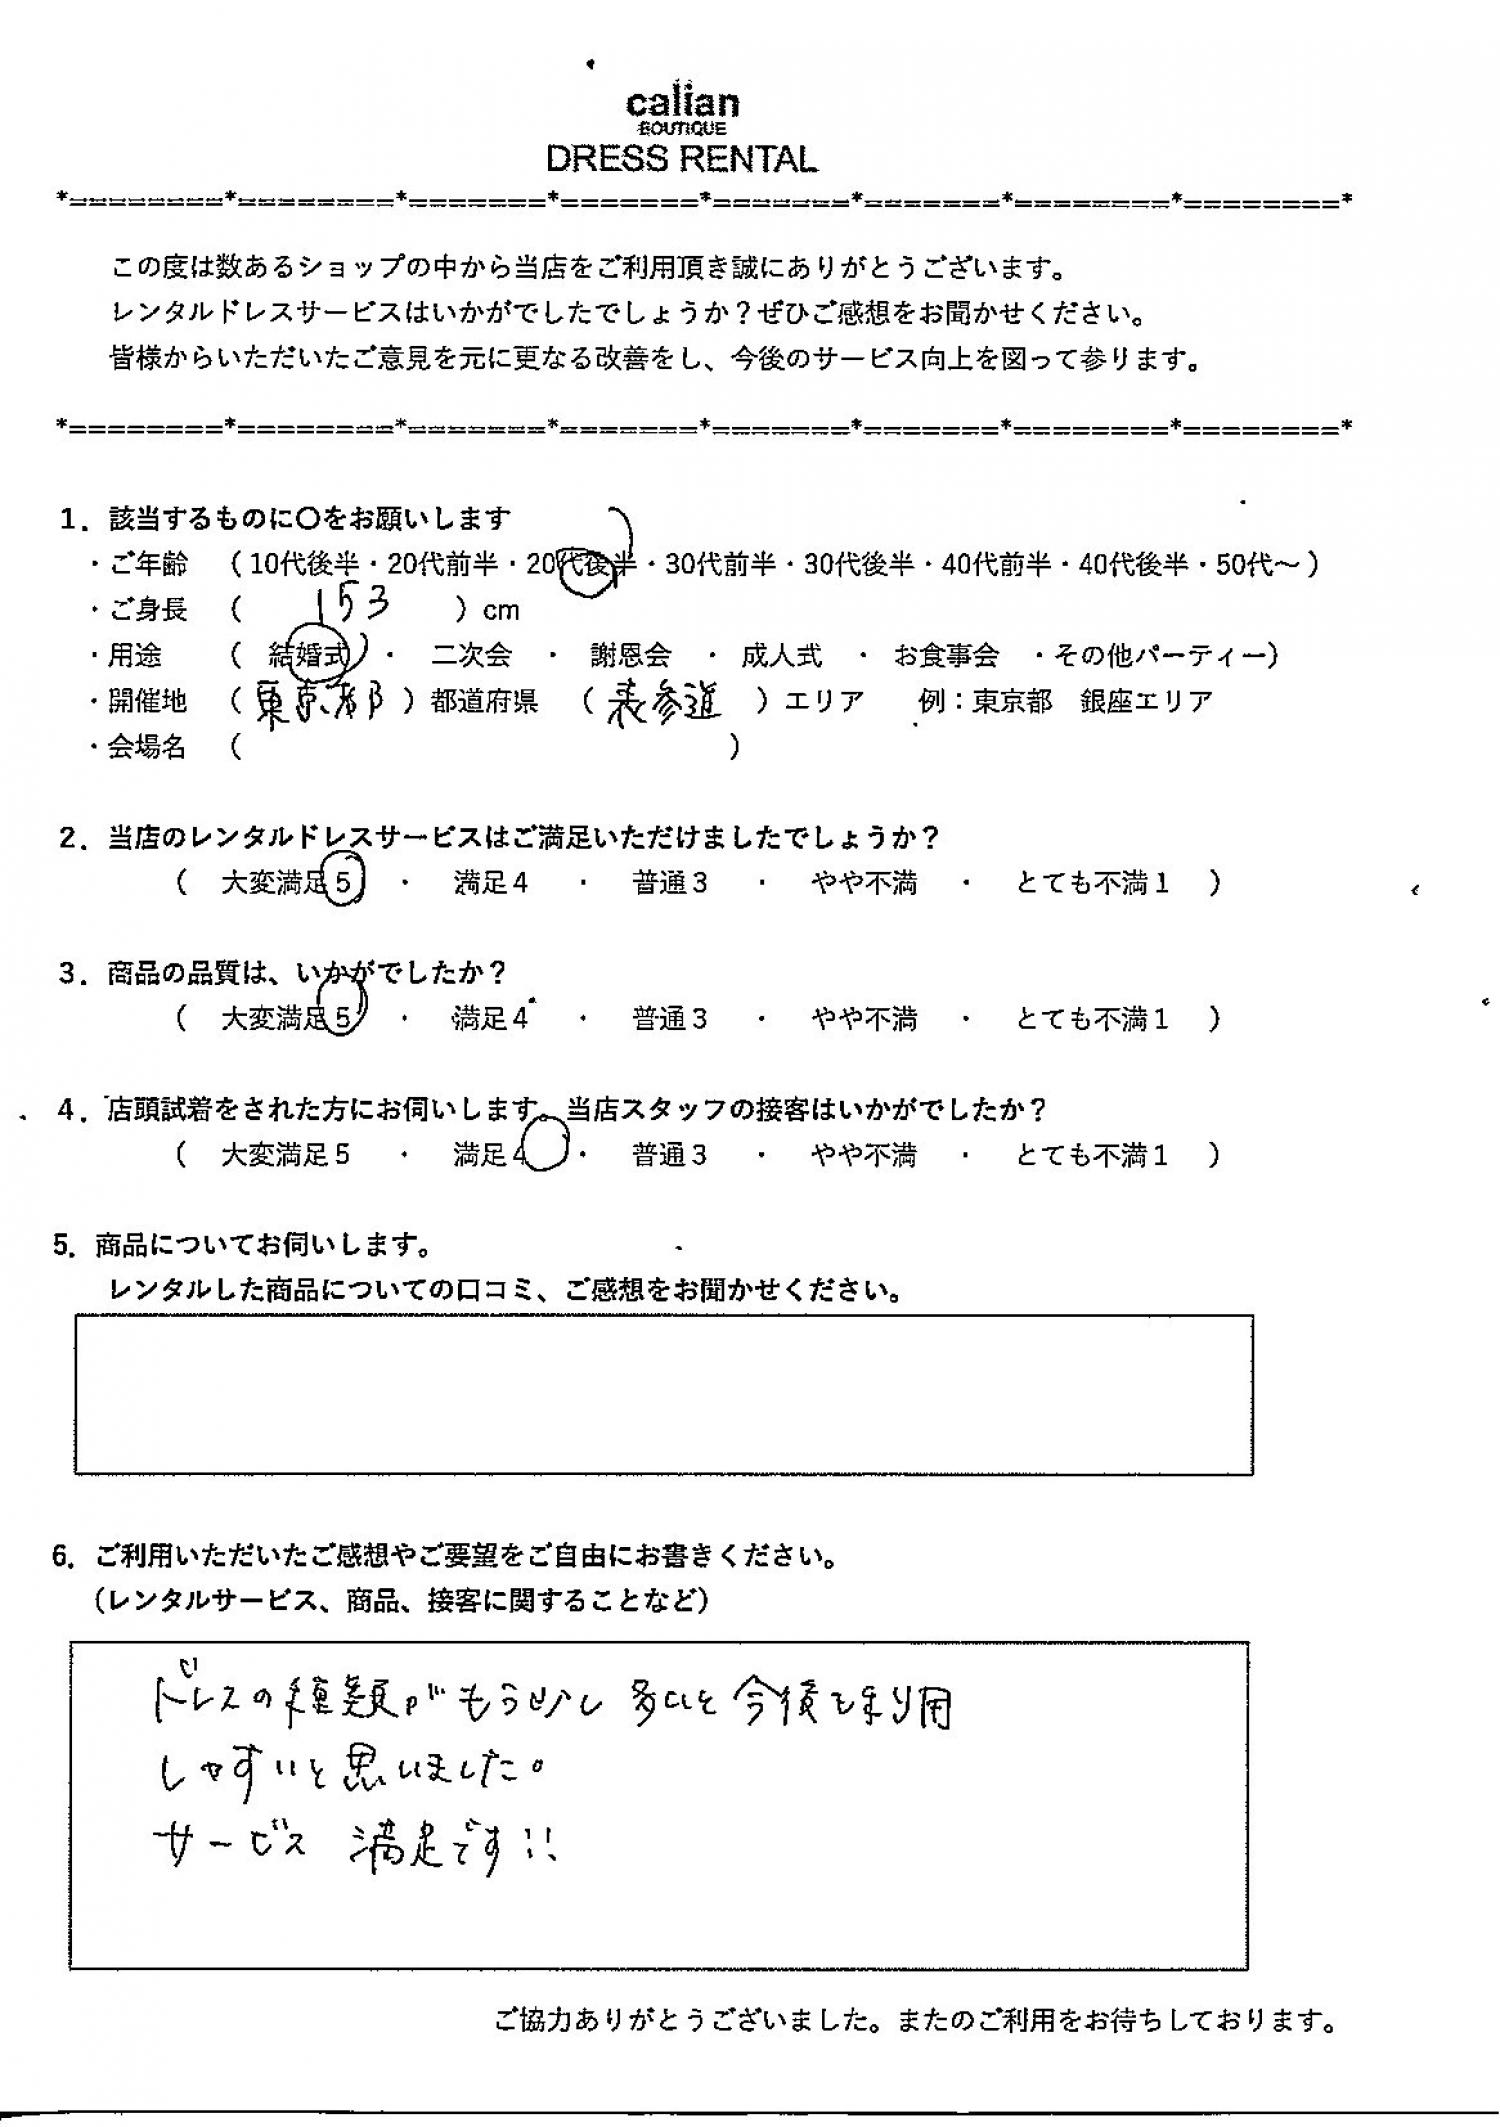 calian
BOUTIQUE
DRESS RENTAL
*========*========*=======*=======*=======*=======*========*========*
この度は数あるショップの中から当店をご利用頂き誠にありがとうございます。
レンタルドレスサービスはいかがでしたでしょうか？ぜひご感想をお聞かせください。
皆様からいただいたご意見を元に更なる改善をし、今後のサービス向上を図って参ります。
*========*========*=======*=======*=======*=======*========*========*
1．該当するものに〇をお願いします
・ご年齢　（10代後半・20代前半・20代後半・30代前半・30代後半・40代前半・40代後半・50代～）
・ご身長　（　153　）cm
・用途　（　結婚式　・　二次会　・　謝恩会　・　成人式　・　お食事会　・その他パーティー）
・開催地　（東京都）都道府県　（表参道）エリア　例：東京都　銀座エリア
・会場名　（　　）
2．当店のレンタルドレスサービスはご満足いただけましたでしょうか？
（　大変満足5　・　満足4　・　普通3　・　やや不満　・　とても不満1　）
3．商品の品質は、いかがでしたか？
（　大変満足5　・　満足4　・　普通3　・　やや不満　・　とても不満1　）
4．店頭試着をされた方にお伺いします。当店スタッフの接客はいかがでしたか？
（　大変満足5　・　満足4　・　普通3　・　やや不満　・　とても不満1　）
5．商品についてお伺いします。
レンタルした商品についての口コミ、ご感想をお聞かせください。
6．ご利用いただいたご感想やご要望をご自由にお書きください。
（レンタルサービス、商品、接客に関することなど）
ドレスの種類がもう少し多いと今後も利用
しやすいと思いました。
サービス 満足です!!
ご協力ありがとうございました。またのご利用をお待ちしております。